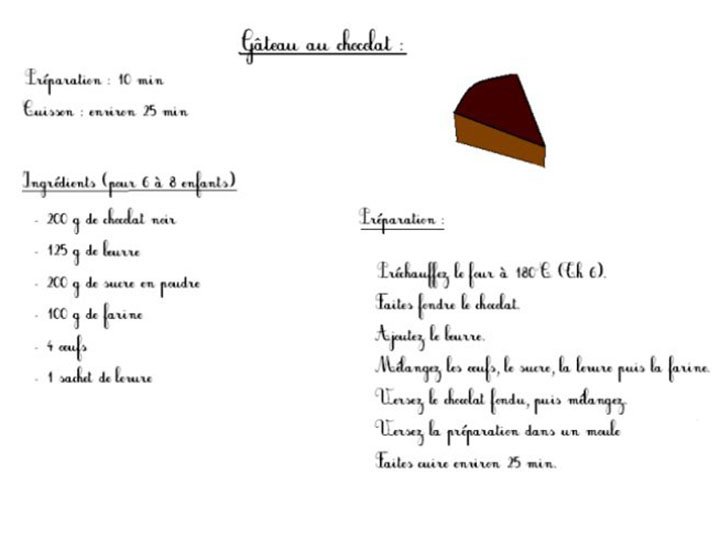 Gâteau au chocolat :
Préparation : 10 min
Cuisson : environ 25 min
Ingrédients (pour 6 à 8 enfants)
- 200 g de chocolat noir
- 125 g de beurre
- 200 g de sucre en poudre
- 100 g de farine
- 4 œufs
- 1 sachet de levure
Préparation :
Préchauffez le four à 180°C (Th 6).
Faites fondre le chocolat.
Ajoutez le beurre.
Mélangez les œufs, le sucre, la levure puis la farine.
Versez le chocolat fondu, puis mélangez.
Versez la préparation dans un moule
Faites cuire environ 25 min.